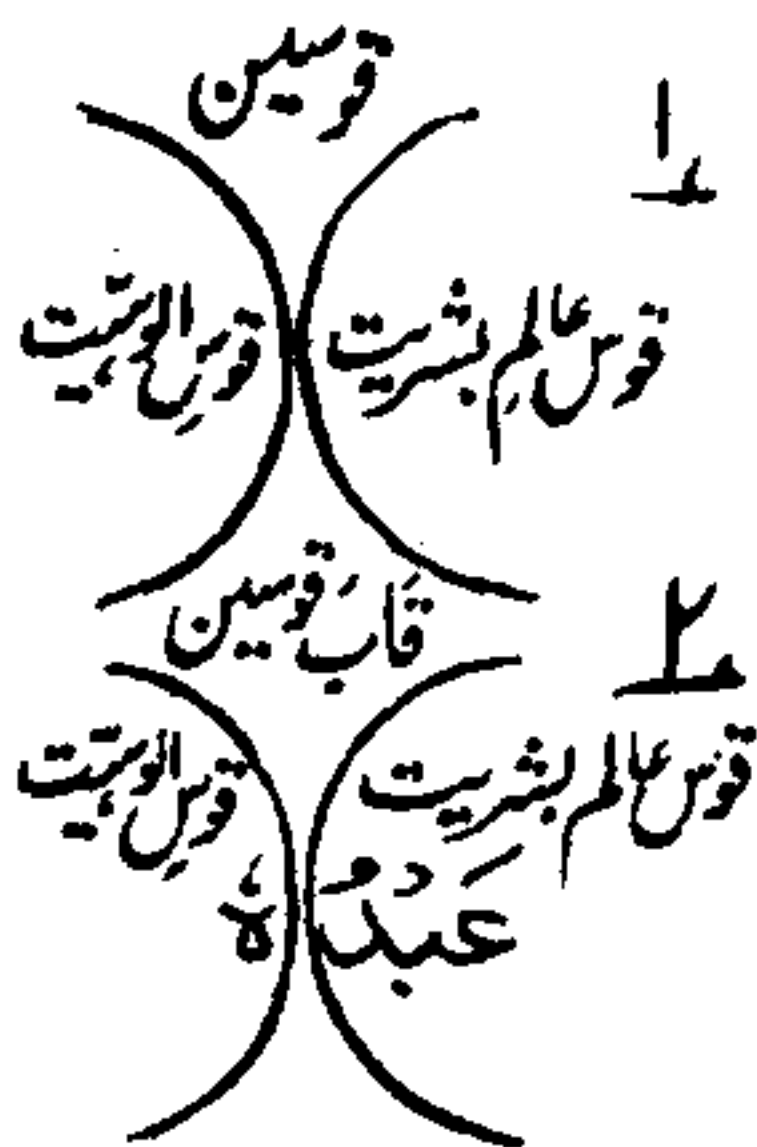 قوسین
۱
قوسِ عالمِ بشریت
قوسِ الوہیّت
قَابَ قوسین
۲
قوس عالم بشریت
قوسِ الوہیّت
عَبْدُ
ہٗ